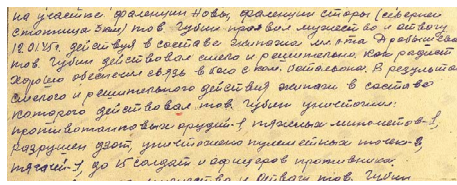 на участке фаленции Новы, фаленции стары (севернее
Стопница 3 км) тов. Губин проявил мужество и отвагу
12.01.45г. действуя в составе экипажа мл. л-та
тов. Губин действовал смело и решительно. Как радист
хорошо обеспечил связь в бою с ком. батальона. В результате
смелого и решительного действия экипажа в составе
которого действовал тов. Губин уничтожил:
противотанковых орудий-1, тяжелых минометов-1,
разрушен дзот, уничтожено пулеметных точек-2,
тягачей-1, до 15 солдат и офицеров противника.
мужество и отвагу тов. Губин